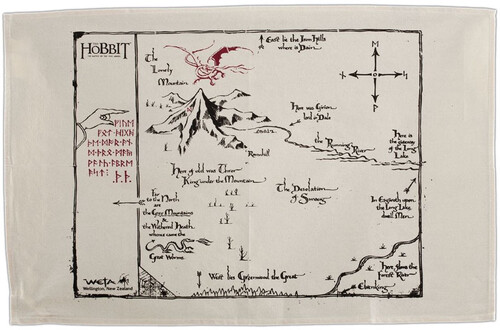 THE
HOBBIT
The
Lonely
Mountain
East lie the Iron Hills
where is Dain
Here was Girion
lord in Dale
the Running River
Here is
the
Long
Lake
Ravenhill
Here of old was Thror
King under the Mountain
The Desolation
of Smaug
Far
to the North
are
the Grey Mountains
&
the Withered Heath
whence came the
Great Worms
In Esgaroth upon
the Long Lake
dwell Men
Here flows the
Forest River
West lies Mirkwood the Great
WETA
Wellington, New Zealand